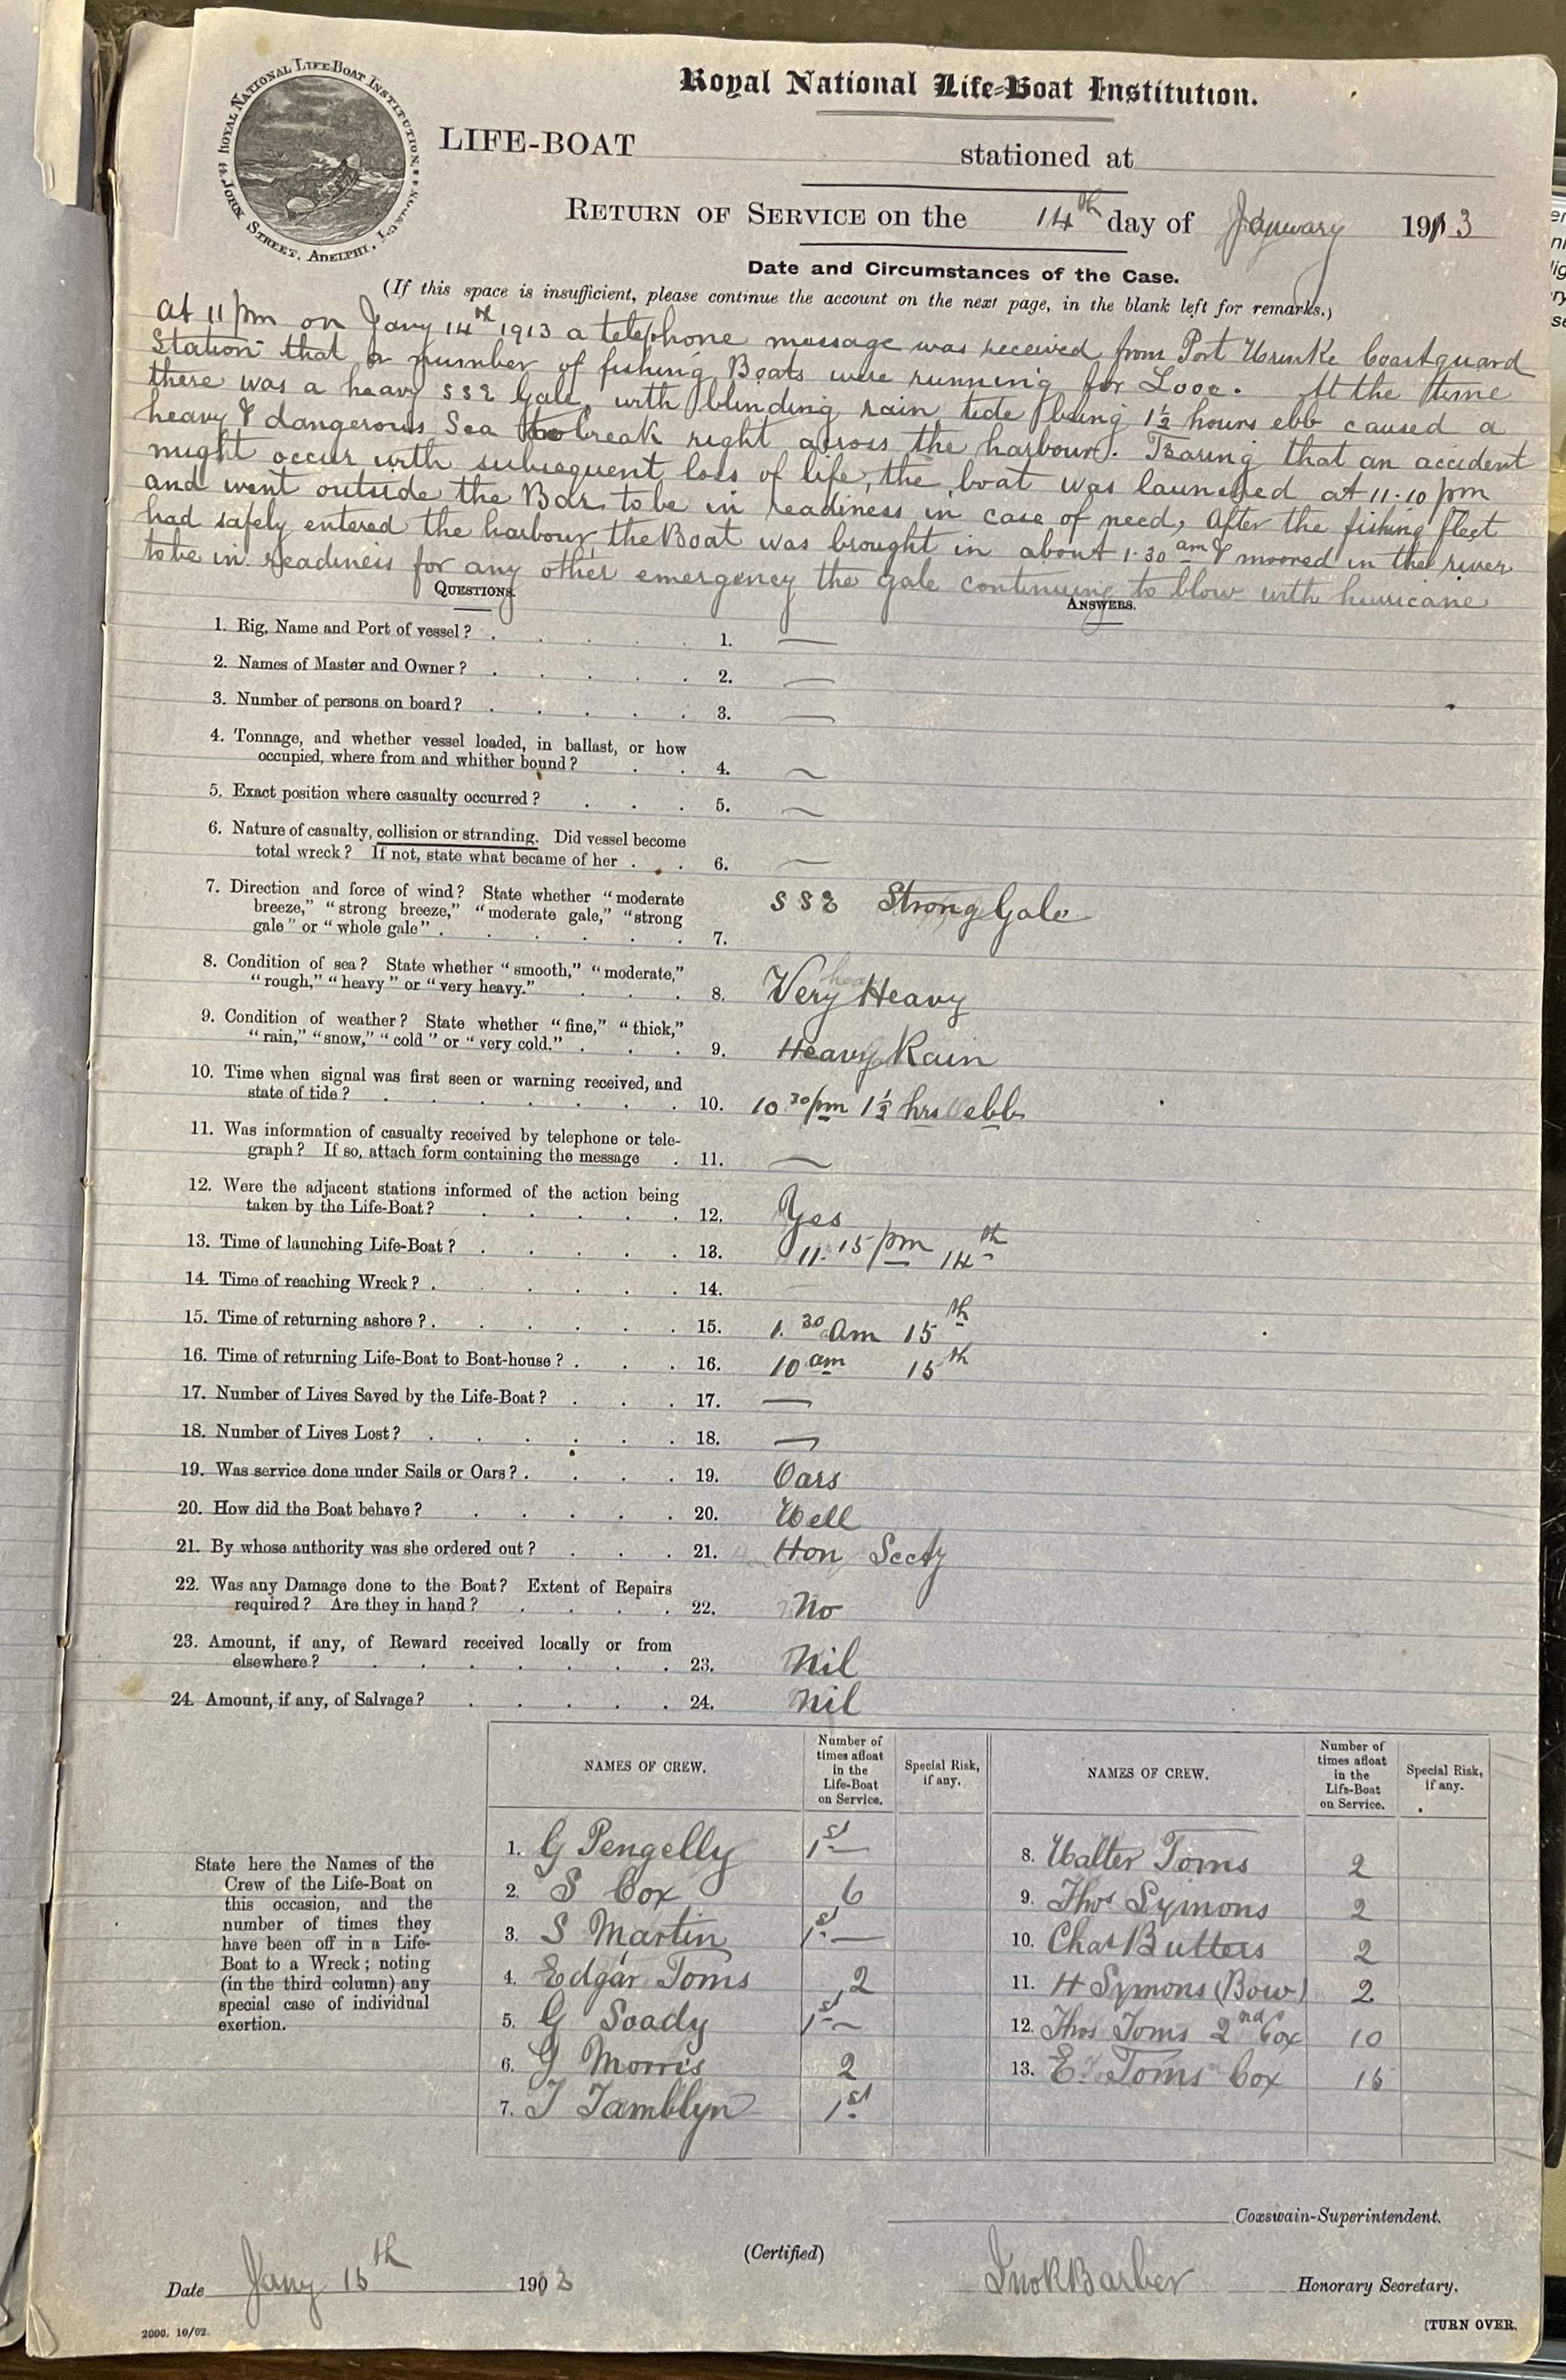 ROYAL NATIONAL LIFE-BOAT INSTITUTION
JOHN STREET, ADELPHI, LONDON
Royal National Life-Boat Institution.
LIFE-BOAT stationed at
RETURN OF SERVICE on the 14th day of January 1913
Date and Circumstances of the Case.
(If this space is insufficient, please continue the account on the next page, in the blank left for remarks.)
At 11 pm on Jany 14th 1913 a telephone message was received from Port Wrinkle Coastguard
Station that a number of fishing Boats were running for Looe. At the time
there was a heavy SSE Gale, with blinding rain tide being 1½ hours ebb caused a
heavy & dangerous Sea to break right across the harbour. Fearing that an accident
might occur with subsequent loss of life, the boat was launched at 11.10 pm
and went outside the Bar to be in readiness in case of need, After the fishing fleet
had safely entered the harbour, the Boat was brought in about 1.30 am & moored in the river
to be in readiness for any other emergency the gale continuing to blow with hurricane
QUESTIONS. ANSWERS.
1. Rig, Name and Port of vessel? 1. —
2. Names of Master and Owner? 2. —
3. Number of persons on board? 3. —
4. Tonnage, and whether vessel loaded, in ballast, or how
occupied, where from and whither bound? 4. —
5. Exact position where casualty occurred? 5. —
6. Nature of casualty, collision or stranding. Did vessel become
total wreck? If not, state what became of her 6. —
7. Direction and force of wind? State whether "moderate
breeze," "strong breeze," "moderate gale," "strong
gale" or "whole gale" 7. SSE Strong Gale
8. Condition of sea? State whether "smooth," "moderate,"
"rough," "heavy" or "very heavy." 8. Very Heavy
9. Condition of weather? State whether "fine," "thick,"
"rain," "snow," "cold" or "very cold." 9. Heavy Rain
10. Time when signal was first seen or warning received, and
state of tide? 10. 10 30 pm 1½ hrs ebb
11. Was information of casualty received by telephone or tele-
graph? If so, attach form containing the message 11. —
12. Were the adjacent stations informed of the action being
taken by the Life-Boat? 12. Yes
13. Time of launching Life-Boat? 13. 11.15 pm 14th
14. Time of reaching Wreck? 14.
15. Time of returning ashore? 15. 1.30 Am 15th
16. Time of returning Life-Boat to Boat-house? 16. 10 am 15th
17. Number of Lives Saved by the Life-Boat? 17. —
18. Number of Lives Lost? 18. —
19. Was service done under Sails or Oars? 19. Oars
20. How did the Boat behave? 20. Well
21. By whose authority was she ordered out? 21. Hon Secty
22. Was any Damage done to the Boat? Extent of Repairs
required? Are they in hand? 22. No
23. Amount, if any, of Reward received locally or from
elsewhere? 23. Nil
24. Amount, if any, of Salvage? 24. Nil
State here the Names of the
Crew of the Life-Boat on
this occasion, and the
number of times they
have been off in a Life-
Boat to a Wreck; noting
(in the third column) any
special case of individual
exertion.
NAMES OF CREW. Number of times afloat in the Life-Boat on Service. Special Risk, if any.
1. G Pengelly 1st
2. S Cox 6
3. S Martin 1st
4. Edgar Toms 2
5. G Soady 1st
6. J Morris 2
7. T Tamblyn 1st
NAMES OF CREW. Number of times afloat in the Life-Boat on Service. Special Risk, if any.
8. Walter Toms 2
9. Thos Symons 2
10. Chas Butters 2
11. H Symons (Bow) 2
12. Thos Toms 2nd Cox 10
13. E. Toms Cox 15
Coxswain-Superintendent.
(Certified)
Date Jany 15th 1903 Jno R Barber Honorary Secretary.
2000. 10/02. [TURN OVER.